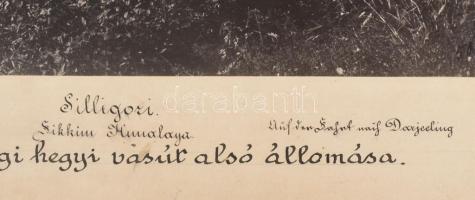 Silligori.
Sikkim Himalaya.
Auf der Fahrt nach Darjeeling
gi hegyi vasút alsó állomása.
darabanth